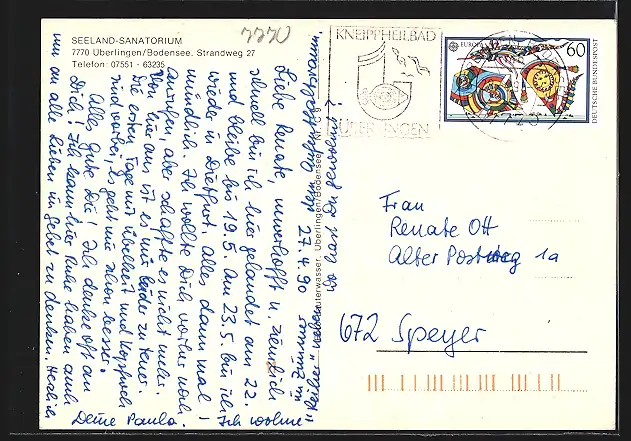 SEELAND-SANATORIUM
7770 Überlingen/Bodensee. Strandweg 27
Telefon: 07551 - 63235
7770
KNEIPPHEILBAD
ÜBERLINGEN
EUROPA
60
DEUTSCHE BUNDESPOST
27.4.90
Liebe Renate, unverhofft u. ziemlich
schnell bin ich hier gelandet am 22.
und bleibe bis 19.5. Am 23.5 bin ich
wieder in Dietfurt. Alles dann mal
mündlich. Ich wollte Dich vorher noch
anrufen, aber schaffte es nicht mehr.
Von hier aus ist es mir leider zu teuer.
Die ersten Tage mit Übelkeit und Kopfweh
sind vorbei, es geht mir schon besser.
Alles Gute Dir! Ich denke oft an
Dich! Ich kann hier Ruhe haben auch
um an alle Lieben im Gebet zu denken. Herzlich
Deine Paula.
Ich wohne
wo hast Du gewohnt?
Frau
Renate Ott
Alter Postweg 1a
672 Speyer